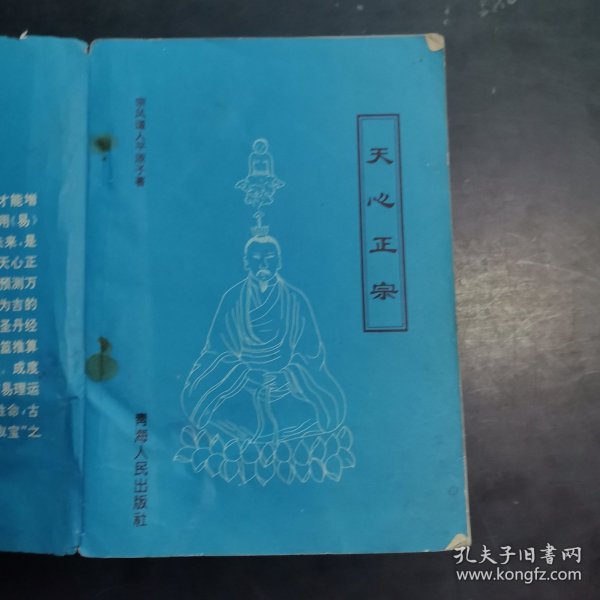 天心正宗
青海人民出版社
才能增
用《易》
未来，是
天心正
预测万
为吉的
圣丹经
篮推算
，成度
易理运
性命，古
”之
孔夫子旧书网
www.kongfz.com